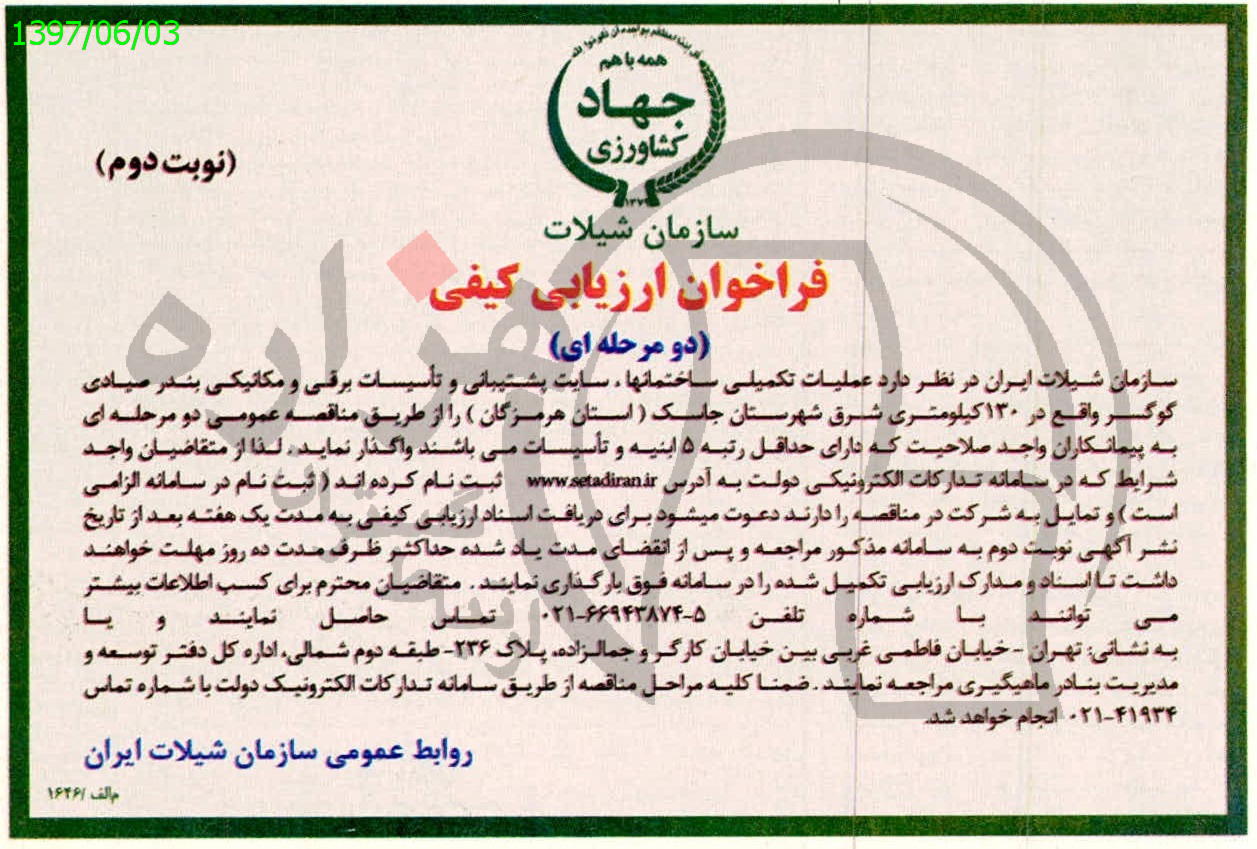 1397/06/03
همه با هم
جهاد
کشاورزی
سازمان شیلات
(نوبت دوم)
فراخوان ارزیابی کیفی
(دو مرحله ای)
سازمان شیلات ایران در نظر دارد عملیات تکمیلی ساختمانها ، سایت پشتیبانی و تأسیسات برقی و مکانیکی بندر صیادی
گوگسر واقع در ۱۳۰کیلومتری شرق شهرستان جاسک ( استان هرمزگان ) را از طریق مناقصه عمومی دو مرحله ای
به پیمانکاران واجد صلاحیت که دارای حداقل رتبه ۵ ابنیه و تأسیسات می باشند واگذار نماید. لذا از متقاضیان واجد
شرایط که در سامانه تدارکات الکترونیکی دولت به آدرس www.setadiran.ir ثبت نام کرده اند ( ثبت نام در سامانه الزامی
است ) و تمایل به شرکت در مناقصه را دارند دعوت میشود برای دریافت اسناد ارزیابی کیفی به مدت یک هفته بعد از تاریخ
نشر آگهی نوبت دوم به سامانه مذکور مراجعه و پس از انقضای مدت یاد شده حداکثر ظرف مدت ده روز مهلت خواهند
داشت تا اسناد و مدارک ارزیابی تکمیل شده را در سامانه فوق بارگذاری نمایند . متقاضیان محترم برای کسب اطلاعات بیشتر
می توانند با شماره تلفن ۵-۶۶۹۴۳۸۷۴-۰۲۱ تماس حاصل نمایند و یا
به نشانی: تهران - خیابان فاطمی غربی بین خیابان کارگر و جمالزاده، پلاک ۲۳۶- طبقه دوم شمالی، اداره کل دفتر توسعه و
مدیریت بنادر ماهیگیری مراجعه نمایند . ضمنا کلیه مراحل مناقصه از طریق سامانه تدارکات الکترونیک دولت با شماره تماس
۰۲۱-۴۱۹۳۴ انجام خواهد شد.
روابط عمومی سازمان شیلات ایران
م/الف /۱۶۴۶
هزاره